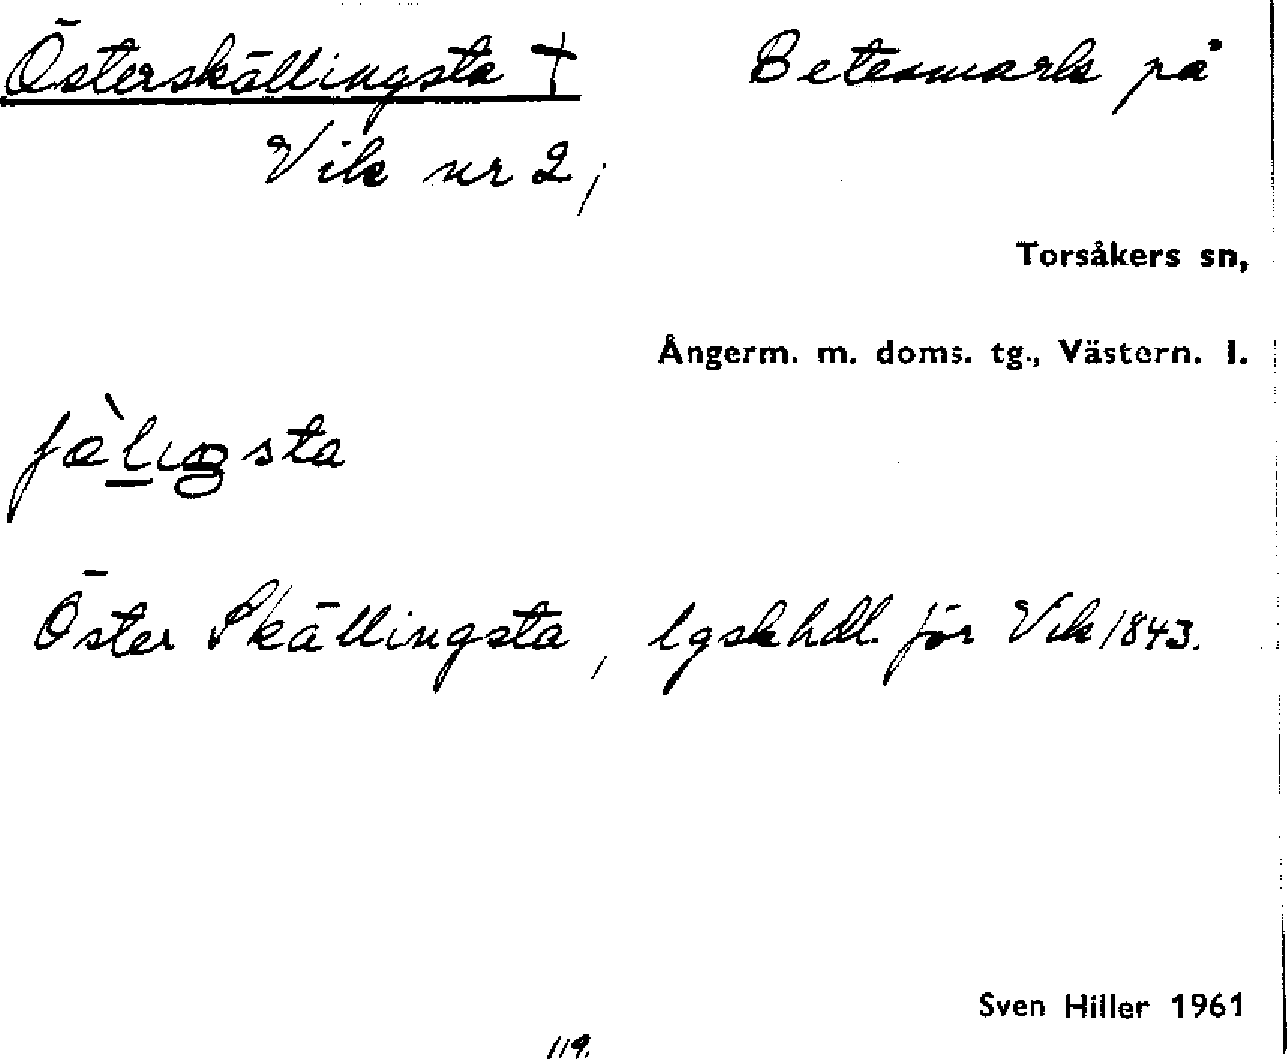 Österskällingsta † Betesmark på
Vik nr 2,
Torsåkers sn,
Ångerm. m. doms. tg., Västern. l.
Öster Skällingsta, lgskhdl. för Vik 1843.
Sven Hiller 1961
119.